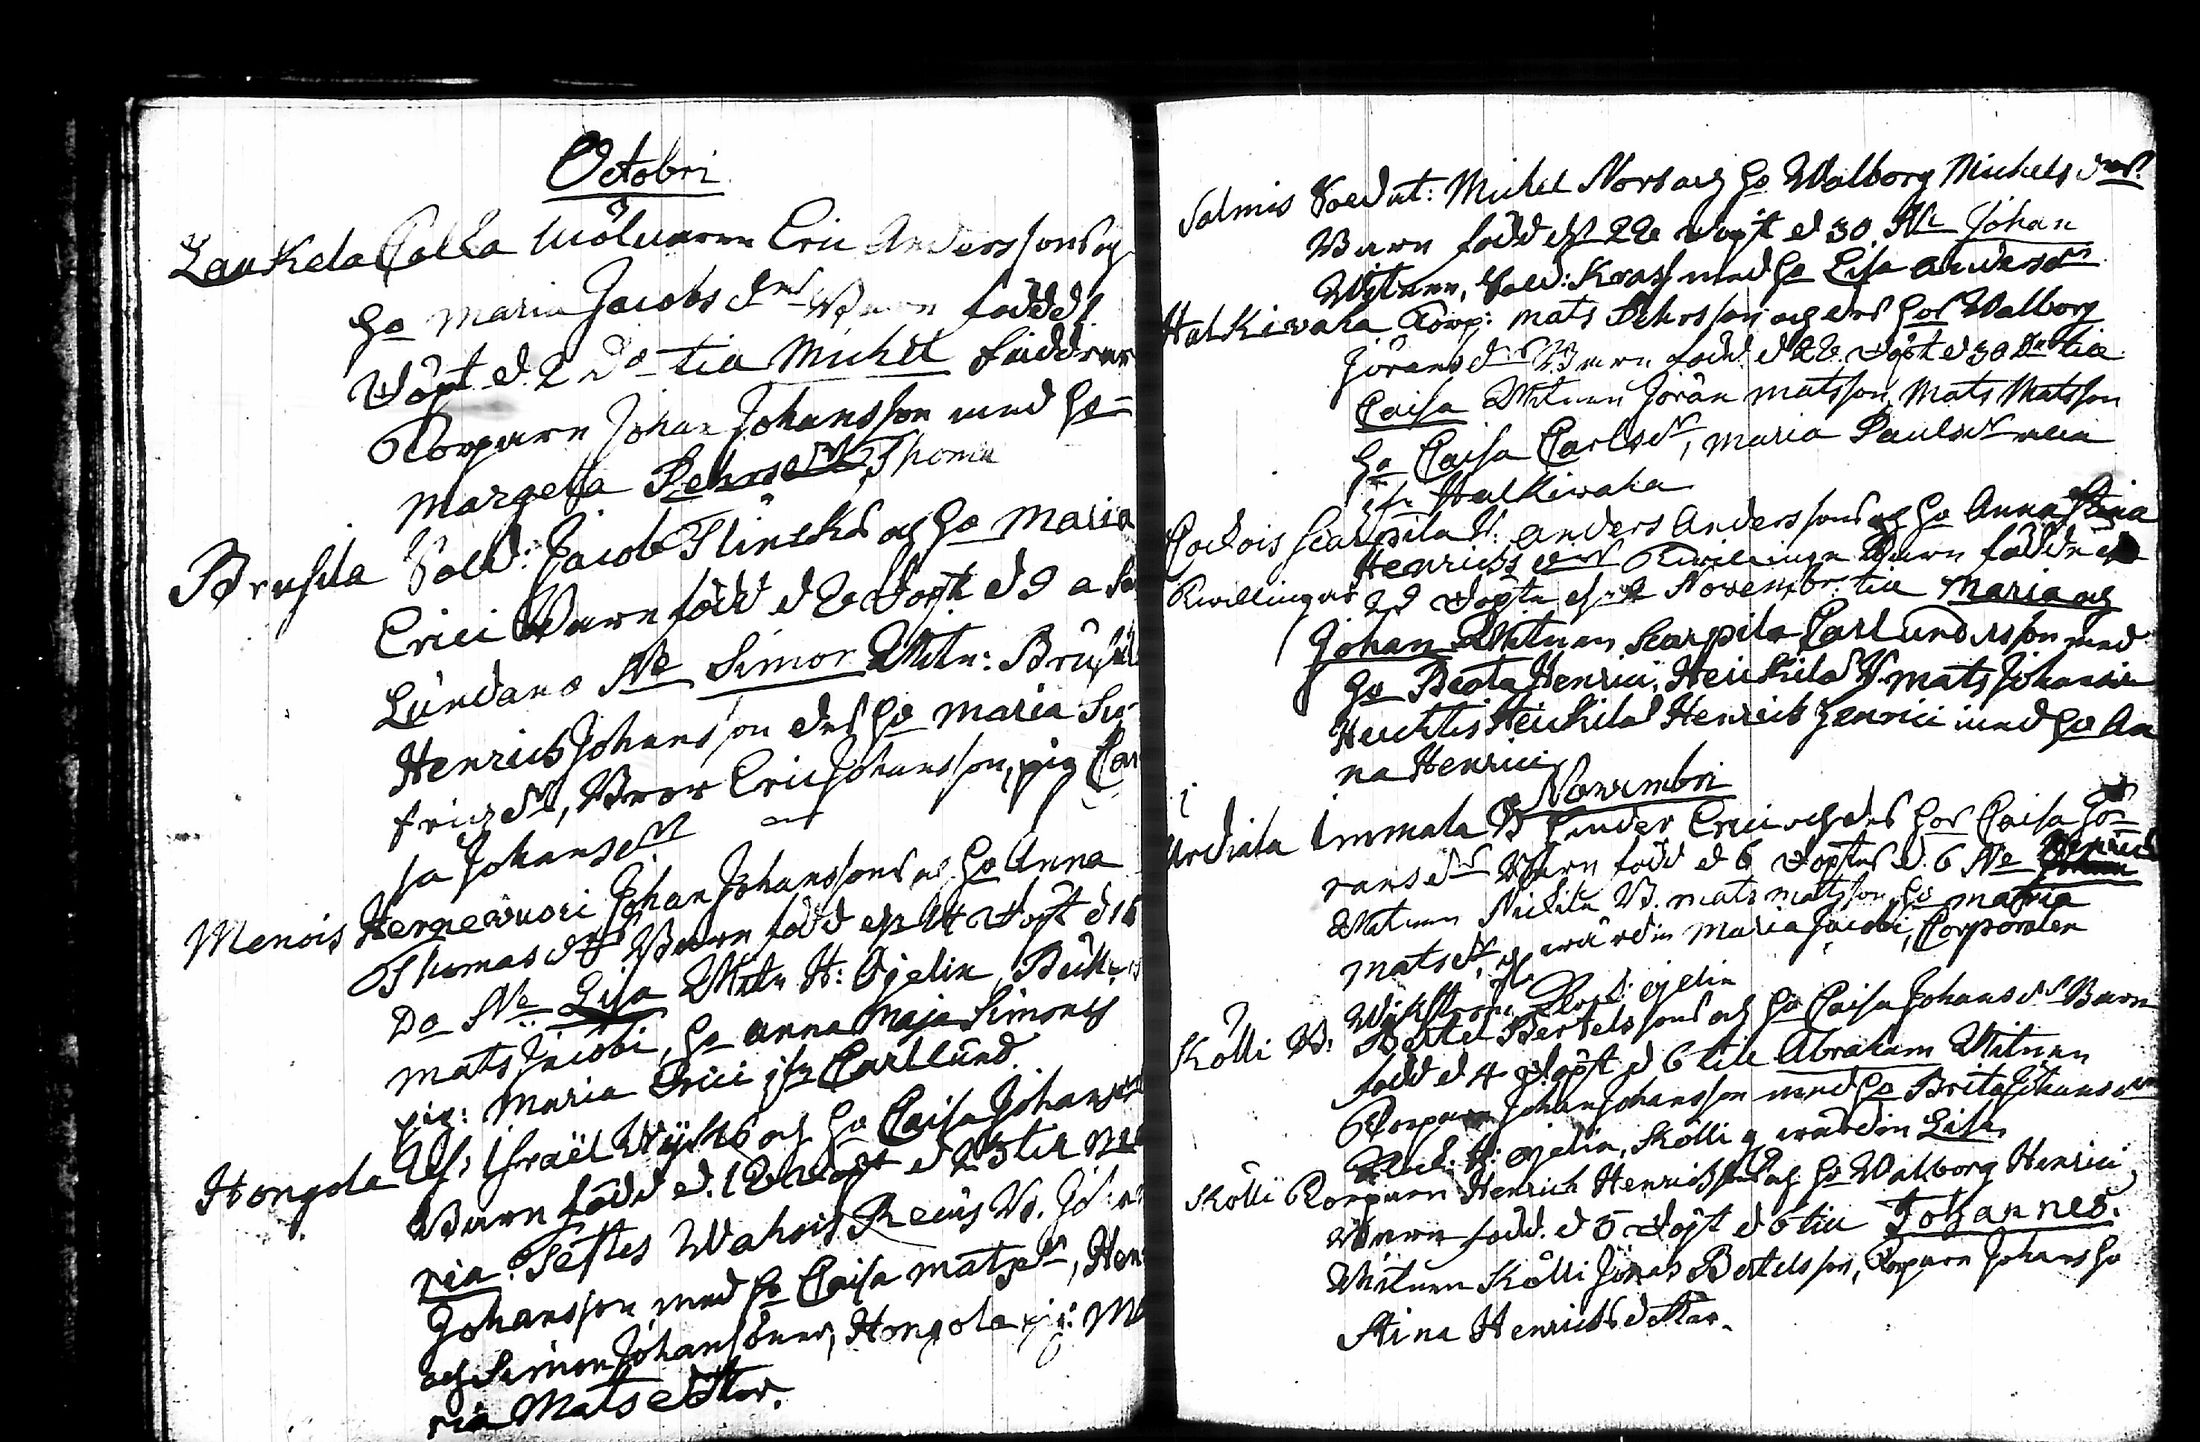 Octobri
Laukela Palla Mölnaren Eric Anderssons og
ho Maria Jacobs dr Barn född d 1
döpt d. 2 do till Michel faddrar
Torparn Johan Johansson med ho
Margeta Pehrs dr Thomæ
Brusila Sold: Jacob Flincks og ho Maria
Erici Barn född d 2 döpt d 9 a
Lundana Ne Simon Witn: Brusila
Henrich Johansson dess ho Maria Si
frieds dr, Bror Eric Johansson, pig Cai
sa Johans dr
Menois Hernewuori Johan Johanssons og ho Anna
Thomas dr Barn född d 14 döpt d 16
Do Ne Lisa Witn H: Öjelin
Mats Jacobi, ho Anna Maja Simonis
pig: Maria Erici Carl Lund.
Hongola Israël og ho Caisa Johans
Barn född d. 12 döpt d 23 till Ma
ria. Testes Wahois B. Joha
Johansson med ho Caisa Mats dr, Hen
och Simon Johanssöner, Hongola pig: Ma
ria Mats dotter.
Salmis Soldat: Michel Nors og ho Walborg Michels dr
Barn född d 22 döpt d 30 Ne Johan
Witnen, Sold: Krass med ho Lisa Anders dr
Halkiwaha Torp: Mats Pehrsson og dess ho Walborg
Jörans dr Barn född d 22 döpt d 30 Do till
Caisa Witnen Jöran Matsson, Mats Matsson
ho Caisa Carls dr, Maria Pauls dr
Halkiwaha
Scarpila Anders Anderssons og ho Anna Stina
Henrichs dr Twillinge Barn födde d
Twillingar 29 döpte d Novembr: till Maria og
Johan Witnen Scarpila Carl Andersson med
ho Beata Henrici, Heickilä B Mats Johansson
Heickilä Henrich Henrici med ho An
na Henrici
Novembri
Ardiala Immala B Erici och dess ho Caisa Jö
rans dr Barn född d 6 döptes d. 6 Ne Henrich
Witnen Nickilä B. Mats Matsson ho Maria
Mats dr, g wärdin Maria Jacobi, Corporalen
Wickström Öjelin
Kölli B: Bertel Bertelssons och ho Caisa Johans dr Barn
född d 4 döpt d 6 till Abraham Witnen
Torparn Johan Johansson med ho Brita Johans dr
H: Öjelin, Kölli g wärdin Lisa
Kölli Torparn Henrich Henrichssons og ho Walborg Henrici
Barn född. d 5 döpt d 6 till Johannes.
Witnen Kölli Jonas Bertelsson, Torparn Johans ho
Stina Henrichs dotter.